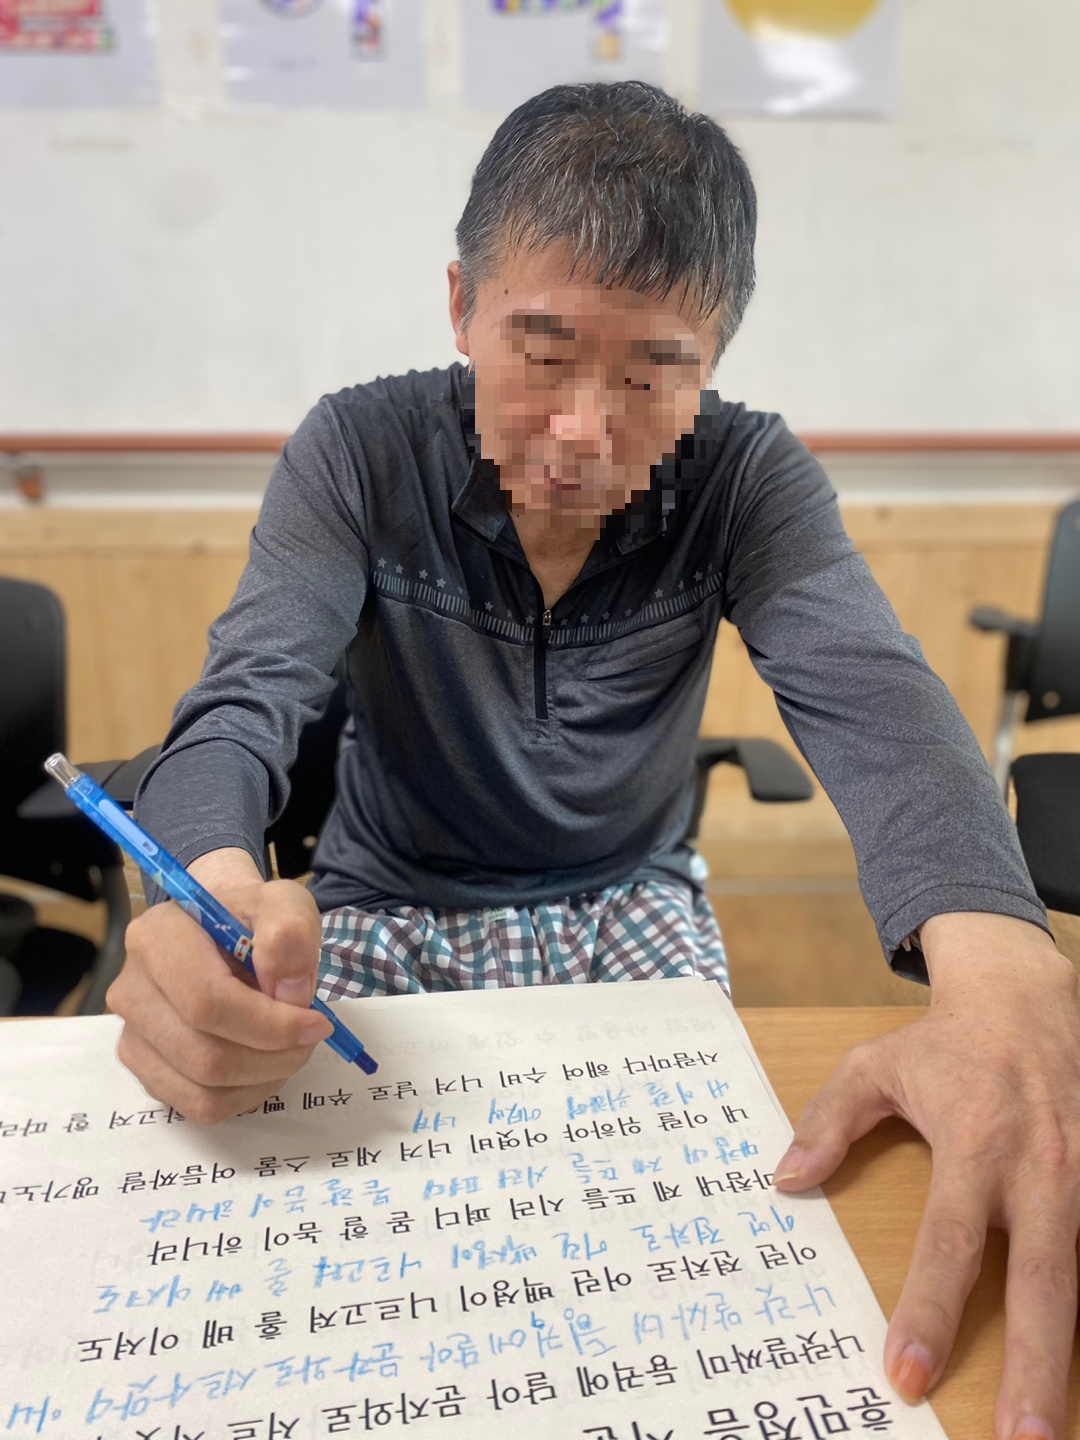 훈민정음 서문
나랏말싸미 듕귁에 달아 문자와로 서르
나랏 말싸미 듕귁에 달아 문자와로 서르 아니
이런 젼차로 어린 백셩이 니르고져 홇 배 이셔도
이런 젼차로 어린 백셩이 니르고져 홇 배 이셔도
마참내 제 뜨들 시러 펴디 몯 할 놈이 하니라
마참내 제 뜨들 시러 펴디 몯 할 놈이 하니라
내 이랄 위하야 어엿비 너겨 새로 스물 여듧짜랄 맹가노
내 이랄 위하야 어엿비 너겨
사람마다 해여 수비 니겨 날로 쑤메 하고져 할 따